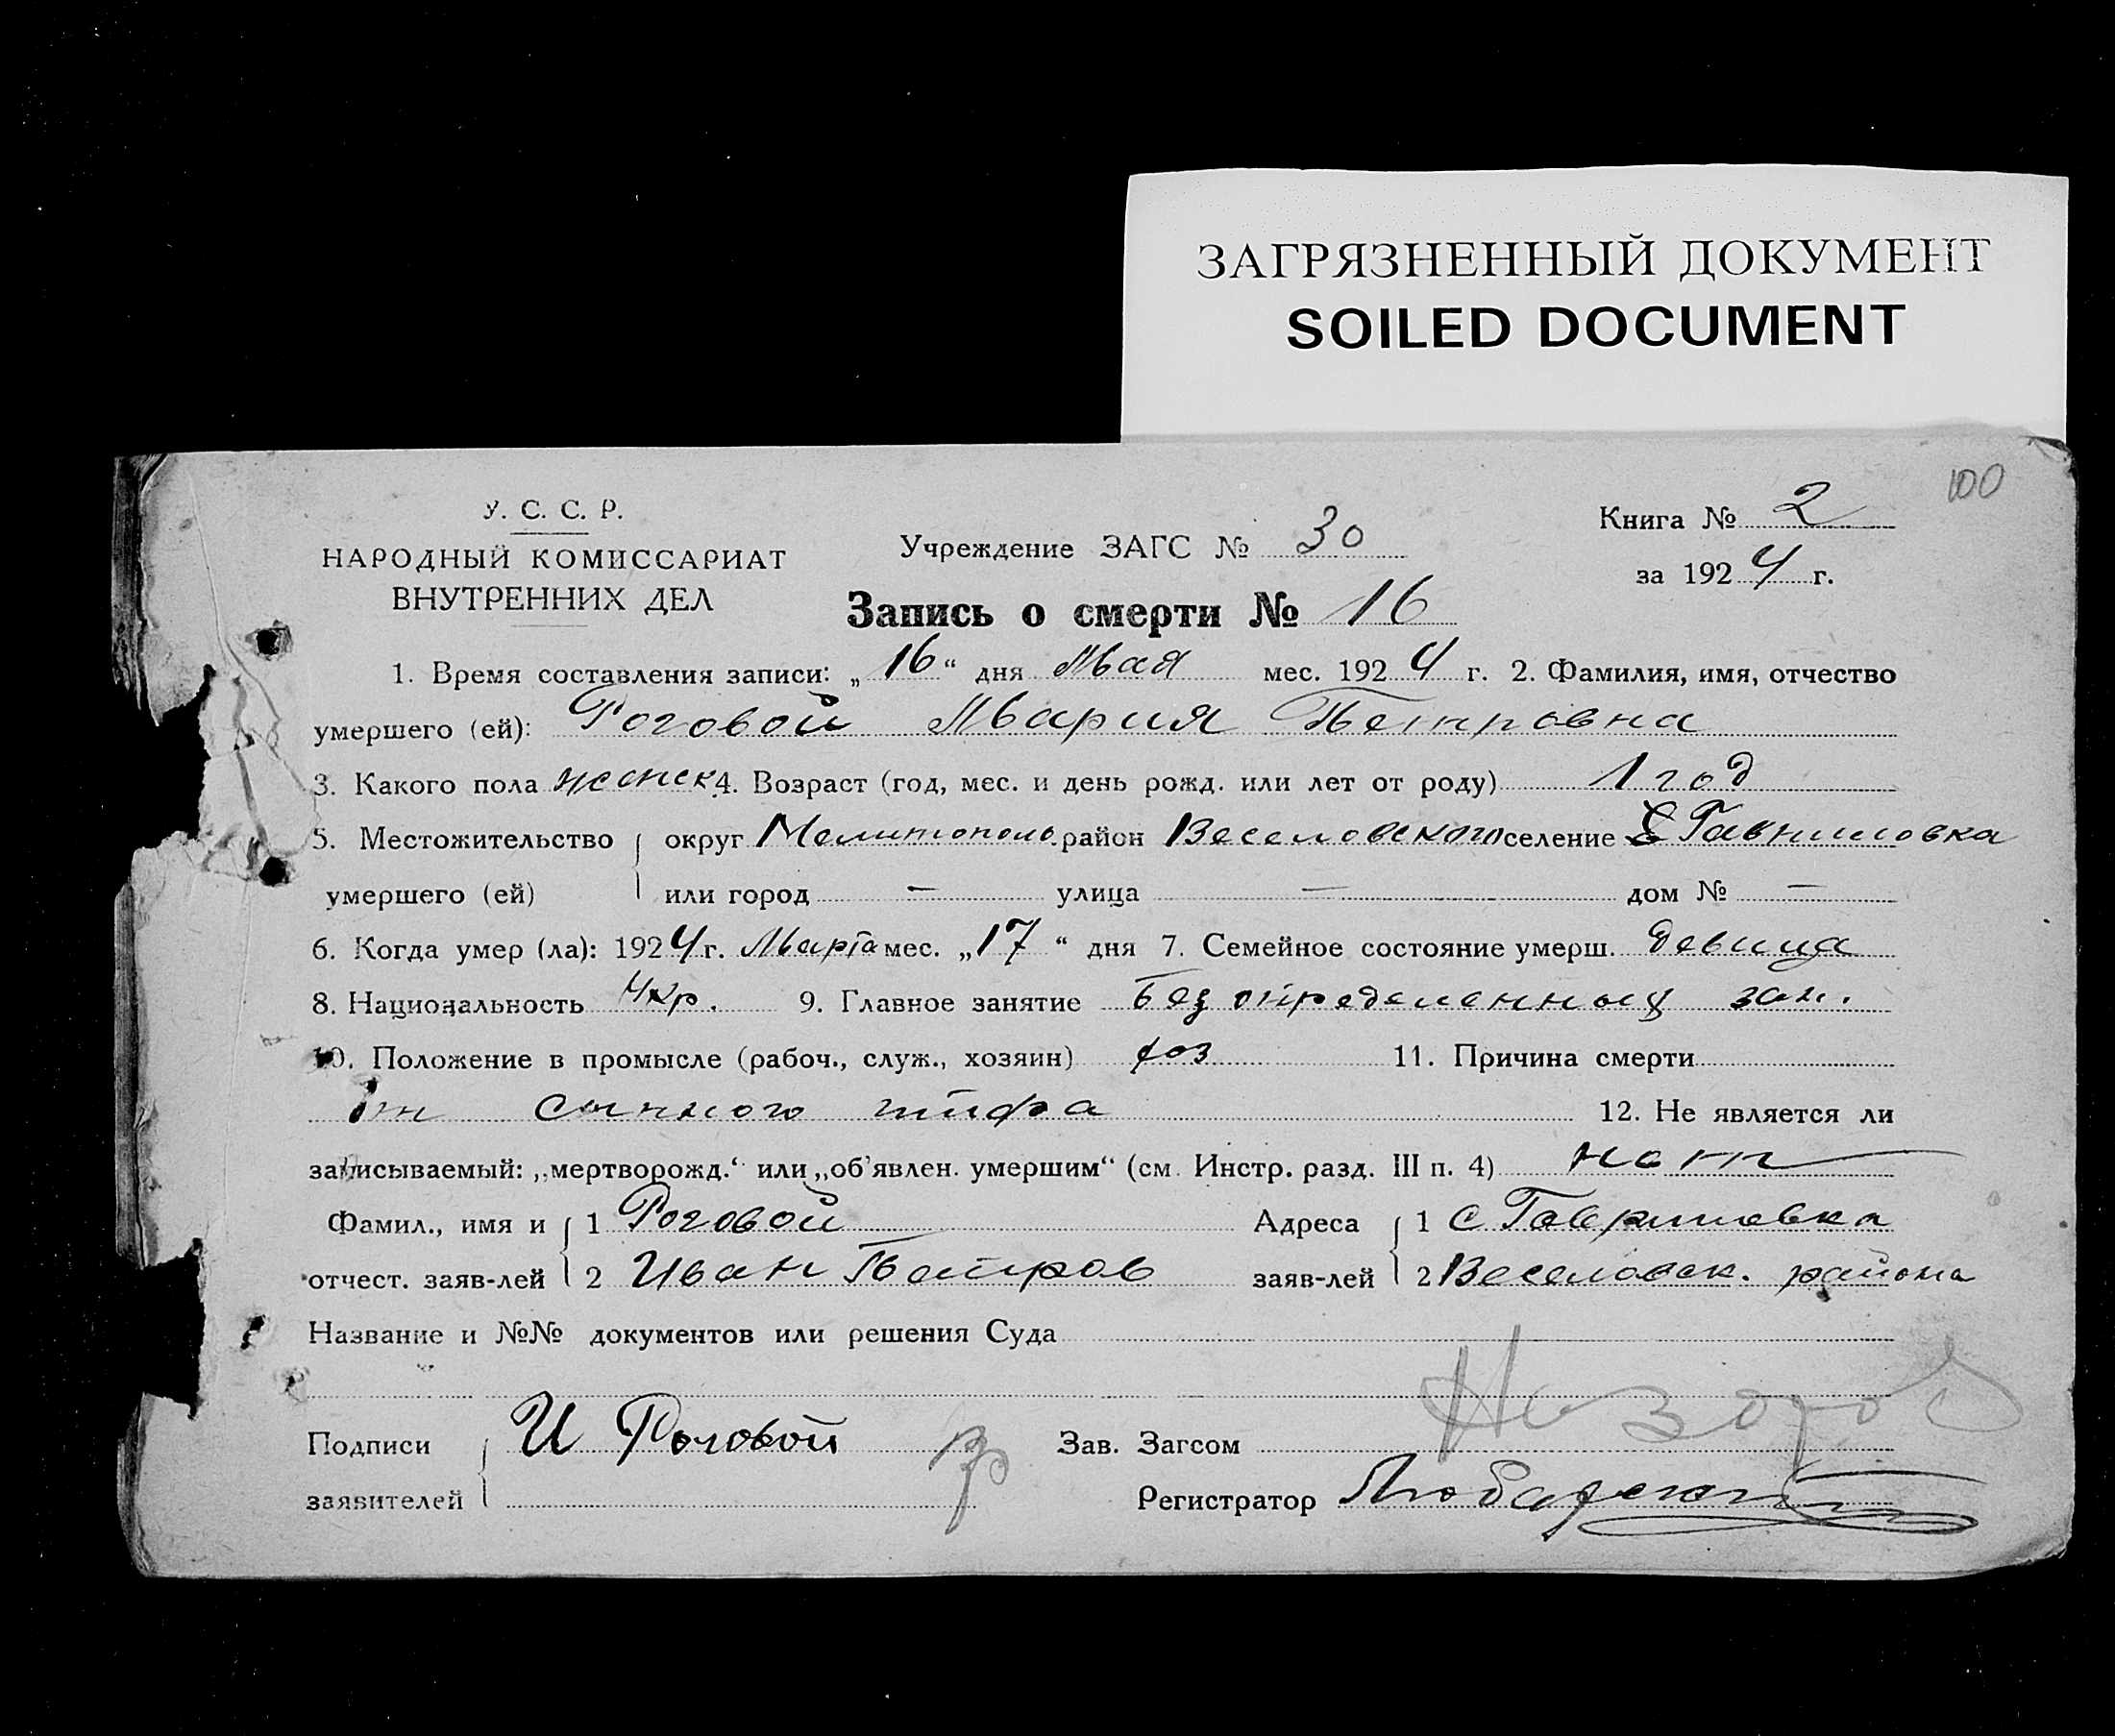 ЗАГРЯЗНЕННЫЙ ДОКУМЕНТ
SOILED DOCUMENT
100
У. С. С. Р.
НАРОДНЫЙ КОМИССАРИАТ
ВНУТРЕННИХ ДЕЛ
Учреждение ЗАГС № 30
Книга № 2
за 1924 г.
Запись о смерти № 16
1. Время составления записи: „16“ дня Мая мес. 1924 г. 2. Фамилия, имя, отчество
умершего (ей): Роговой Мария Петровна
3. Какого пола женск. 4. Возраст (год, мес. и день рожд. или лет от роду) 1 год
5. Местожительство округ Мелитополь. район Веселовского селение С Гавриловка
умершего (ей) или город — улица — дом № —
6. Когда умер (ла): 1924 г. Марта мес. „17“ дня 7. Семейное состояние умерш. девица
8. Национальность Укр. 9. Главное занятие Без определенных зан.
10. Положение в промысле (рабоч., служ., хозяин) хоз 11. Причина смерти
От сыпного тифа 12. Не является ли
записываемый: „мертворожд.“ или „об'явлен. умершим“ (см. Инстр. разд. III п. 4) нет
Фамил., имя и 1 Роговой Адреса 1 С Гавриловка
отчест. заяв-лей 2 Иван Петров заяв-лей 2 Веселовск. района
Название и №№ документов или решения Суда
Подписи И Роговой Зав. Загсом
заявителей Регистратор